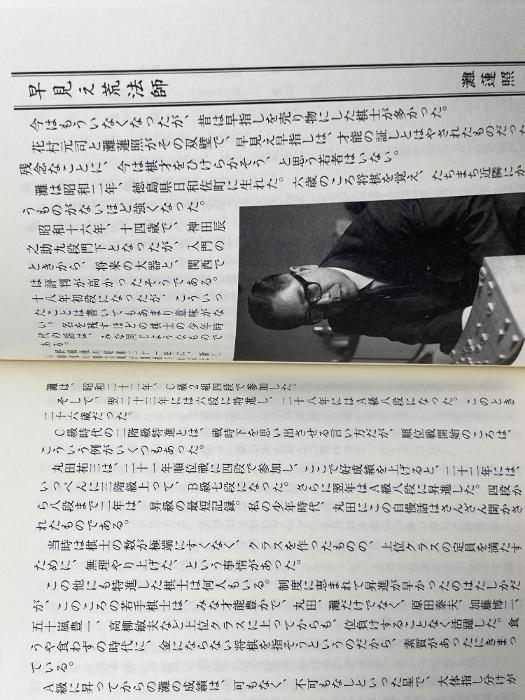 早見え荒法師
灘 蓮照
今はもういなくなったが、昔は早指しを売り物にした棋士が多かった。
花村元司と灘蓮照がその双璧で、早見え早指しは、才能の証しとはやされたものだった
残念なことに、今は棋才をひけらかそう、と思う若者はいない。
灘は昭和二年、徳島県日和佐町に生れた。六歳のころ将棋を覚え、たちまち近隣にか
うものがないほど強くなった。
昭和十六年、十四歳で、神田辰
之助九段門下となったが、入門の
ときから、将来の大器と、関西で
は評判が高かったそうである。
十八年初段になったが、こういっ
たことは書いてもあまり意味がな
い。名を残すほどの棋士の少年時
代の話は、みな同じようなもので
ある。
灘は、昭和二十二年、C級2組四段で参加した。
そして、翌二十三年には六段に特進し、二十八年にはA級八段になった。このとき
二十六歳だった。
C級時代の二階級特進とは、戦時下を思い出させる言い方だが、順位戦開始のころは、
こういう例がいくつもあった。
丸田祐三は、二十一年順位戦に四段で参加し、ここで好成績を上げると、二十二年には、
いっぺんに三階級上って、B級七段になった。さらに翌年はA級八段に昇進した。四段か
ら八段まで二年は、昇級の最短記録。私の少年時代、丸田にこの自慢話はさんざん聞かさ
れたものである。
当時は棋士の数が極端にすくなく、クラスを作ったものの、上位クラスの定員を満たす
ために、無理やり上げた、という事情があった。
この他にも特進した棋士は何人もいる。制度に恵まれて昇進が早かったのはたしかだ
が、このころの若手棋士は、みな才能豊かで、丸田、灘だけでなく、原田泰夫、加藤博二、
五十嵐豊一、高柳敏夫など上位クラスに上ってからも、位負けすることなく活躍した。食
うや食わずの時代に、金にならない将棋を指そうというのだから、素質があったにきまっ
ている。
A級に昇ってからの灘の成績は、可もなく、不可もなしといった星で、大体指し分けが